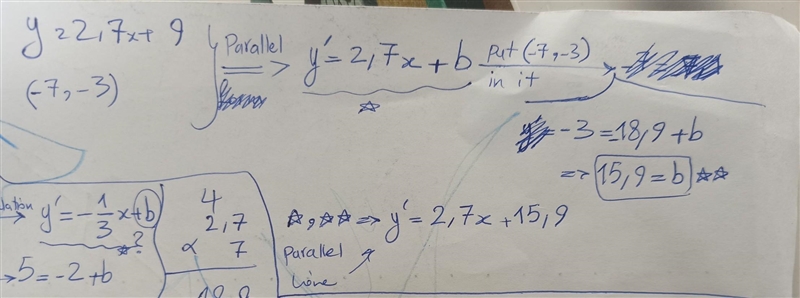 y = 2,7x + 9
(-7, -3)
Parallel
=> y' = 2,7x + b
☆
put (-7, -3)
in it
-3 = -18,9 + b
=> 15,9 = b ☆☆
☆, ☆☆ => y' = 2,7x + 15,9
Parallel
Line
→ y' = -1/3 x + b
☆ ?
→ 5 = -2 + b
4
2,7
× 7
18,9